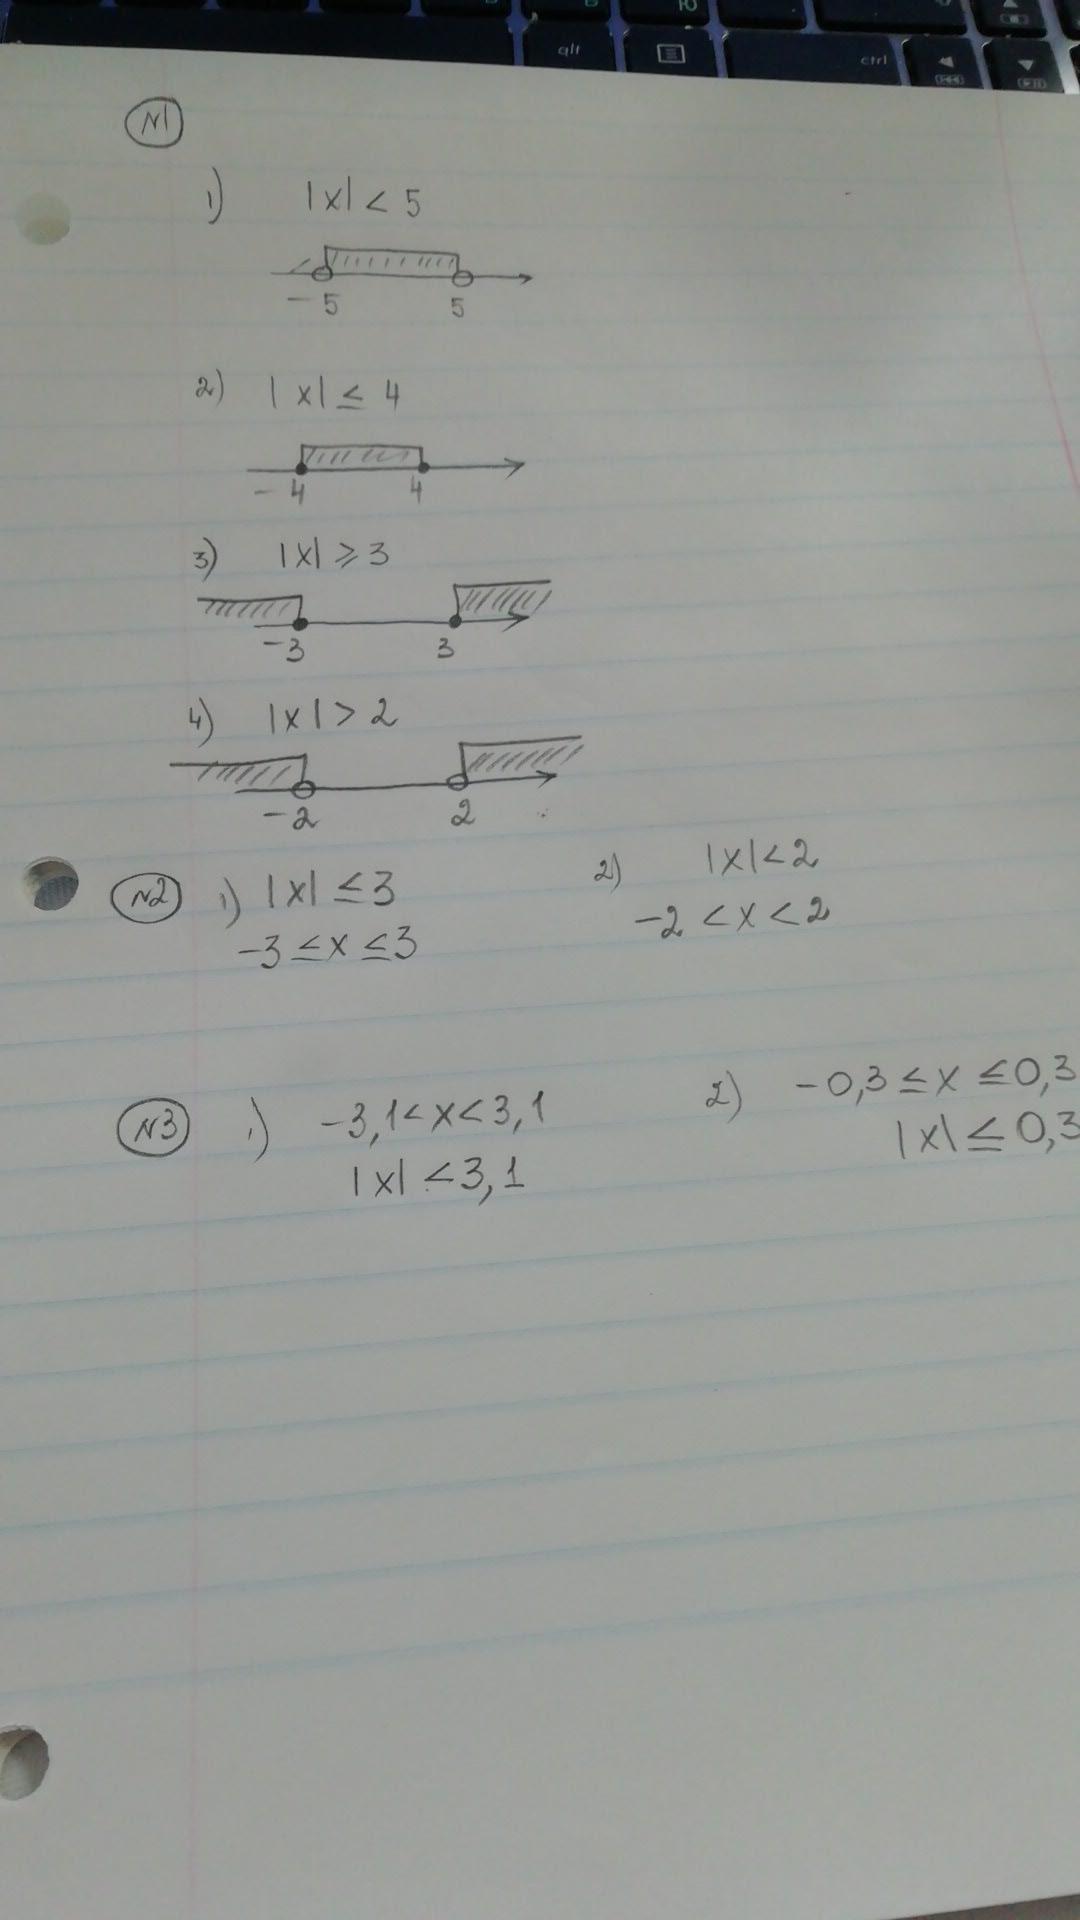 alt ctrl
N1
1) |x| < 5
-5 5
2) |x| ≤ 4
-4 4
3) |x| ⩾ 3
-3 3
4) |x| > 2
-2 2
N2 1) |x| ≤ 3 2) |x| < 2
-3 ≤ x ≤ 3 -2 < x < 2
N3 1) -3,1 < x < 3,1 2) -0,3 ≤ x ≤ 0,3
|x| < 3,1 |x| ≤ 0,3